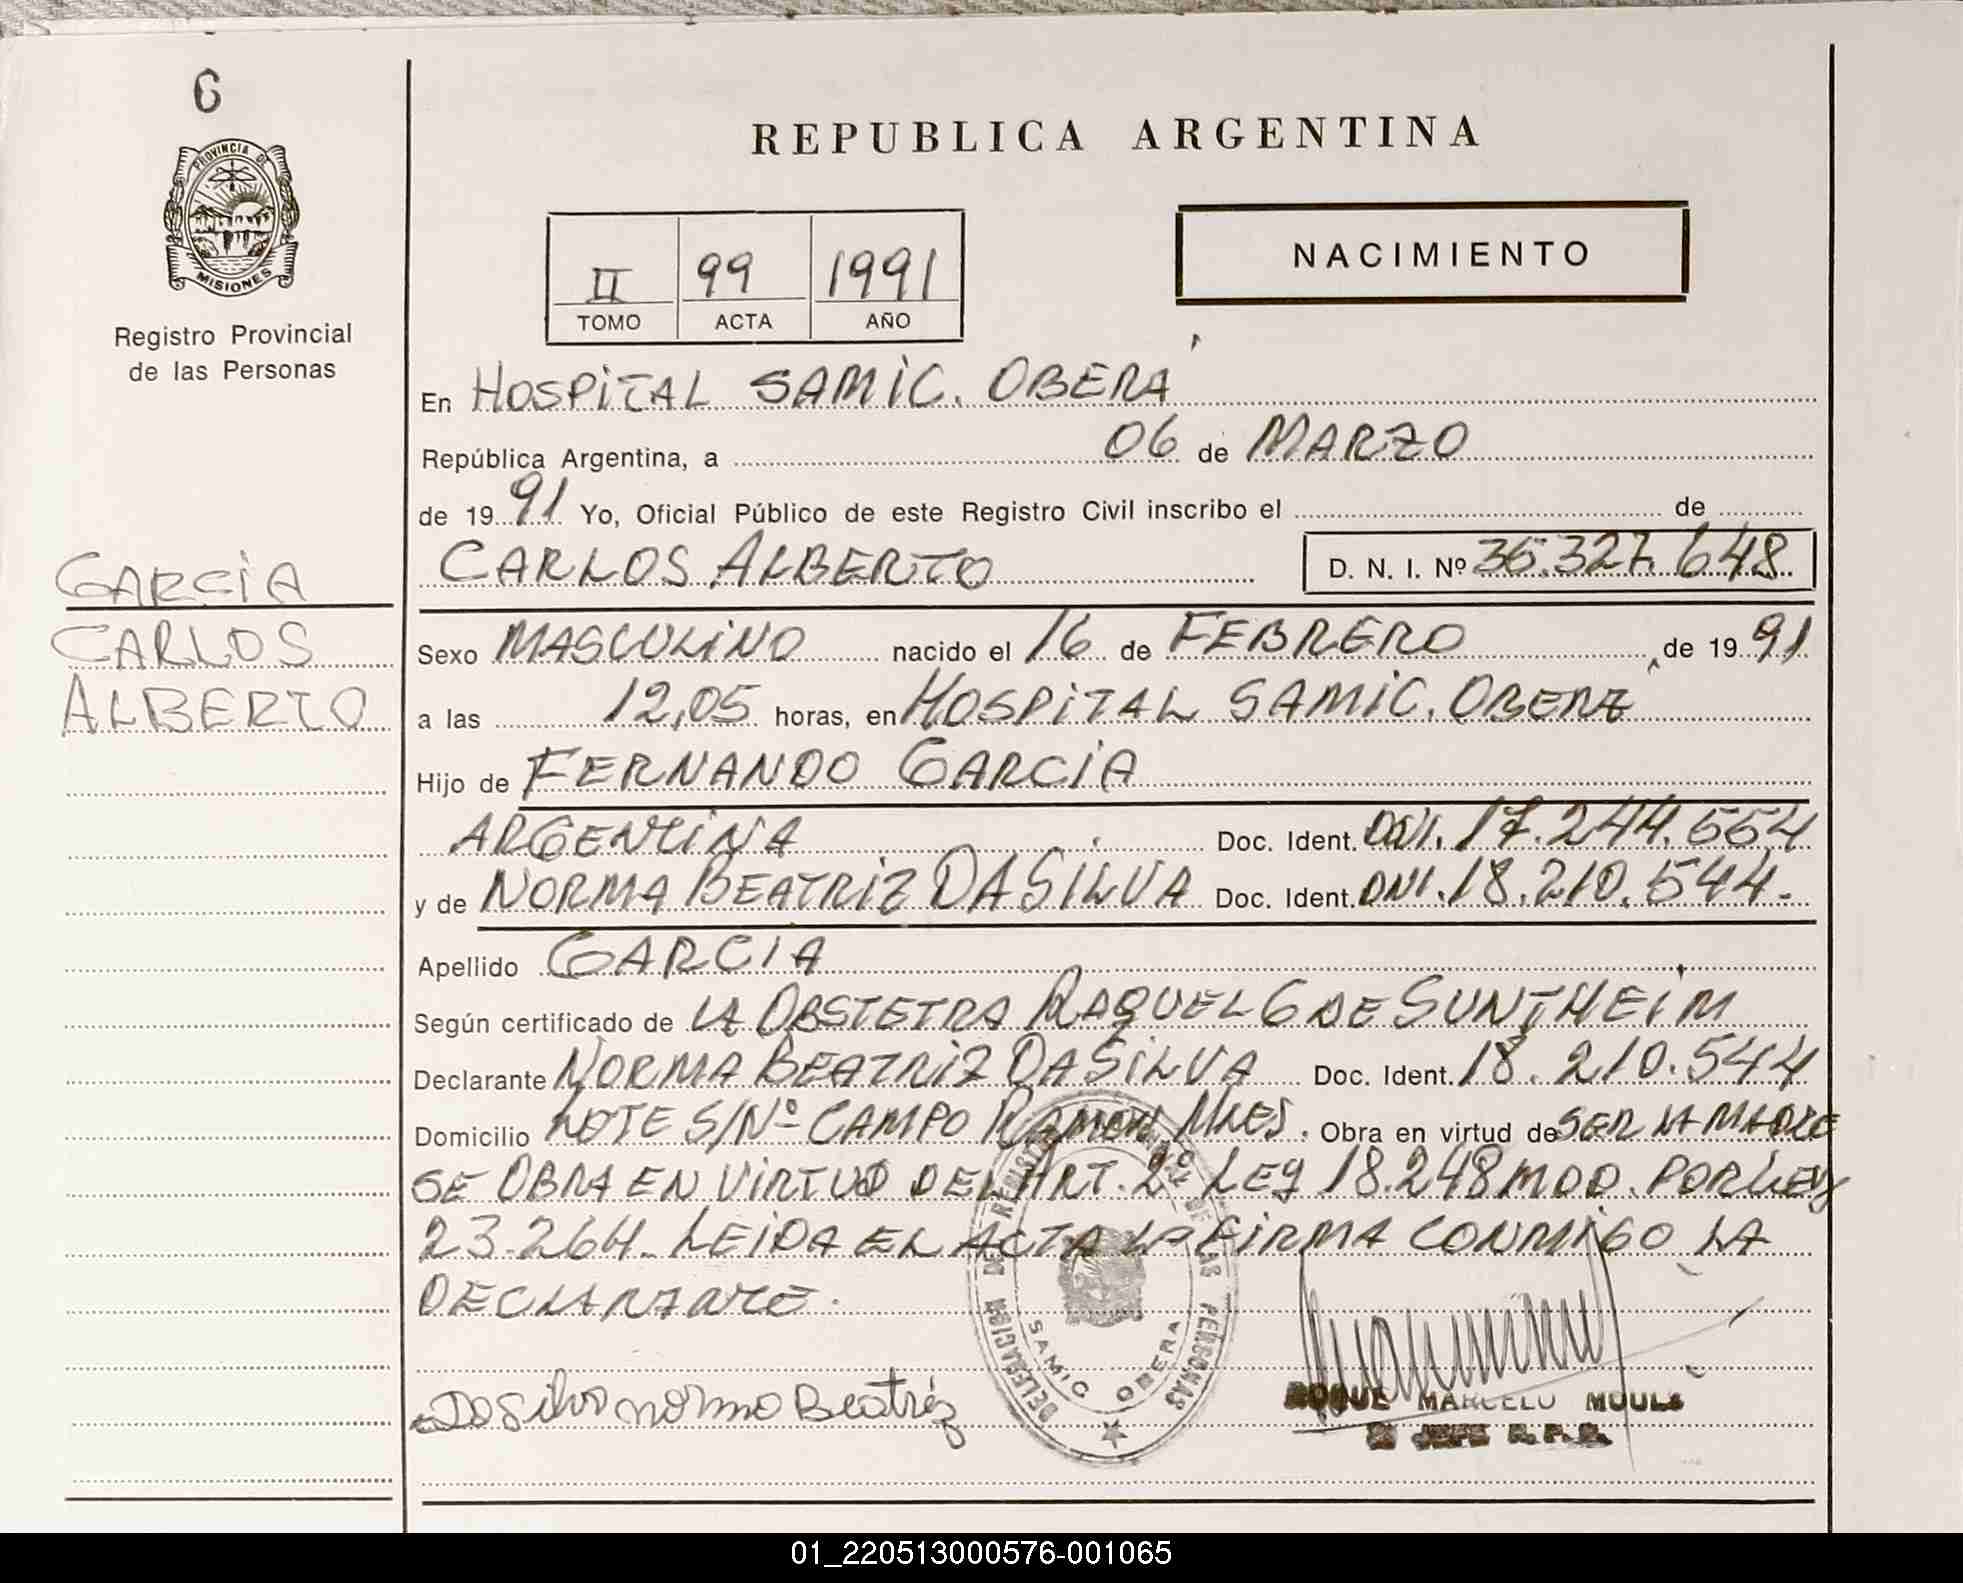 6
PROVINCIA DE
MISIONES
Registro Provincial
de las Personas
GARCIA
CARLOS
ALBERTO
REPUBLICA ARGENTINA
II 99 1991
TOMO ACTA AÑO
NACIMIENTO
En HOSPITAL SAMIC. OBERÁ
República Argentina, a 06 de MARZO
de 1991 Yo, Oficial Público de este Registro Civil inscribo el de
CARLOS ALBERTO D. N. I. Nº 36.327.648.
Sexo MASCULINO nacido el 16 de FEBRERO de 1991
a las 12,05 horas, en HOSPITAL SAMIC. OBERÁ
Hijo de FERNANDO GARCIA
ARGENTINA Doc. Ident. DNI. 17.244.554
y de NORMA BEATRIZ DA SILVA Doc. Ident. DNI. 18.210.544.-
Apellido GARCIA
Según certificado de LA OBSTETRA RAQUEL G DE SUNTHEIM
Declarante NORMA BEATRIZ DA SILVA Doc. Ident. 18.210.544
Domicilio LOTE S/Nº CAMPO RAMON MNES. Obra en virtud de SER LA MADRE
SE OBRA EN VIRTUD DEL ART. 2º LEY 18.248 MOD. POR LEY
23.264. LEIDA EL ACTA LA FIRMA CONMIGO LA
DECLARANTE.
DELEGACION DE REGISTRO DE LAS PERSONAS
SAMIC OBERA
Da Silva Norma Beatríz
ROQUE MARCELO
JEFE R.P.P.
01_220513000576-001065